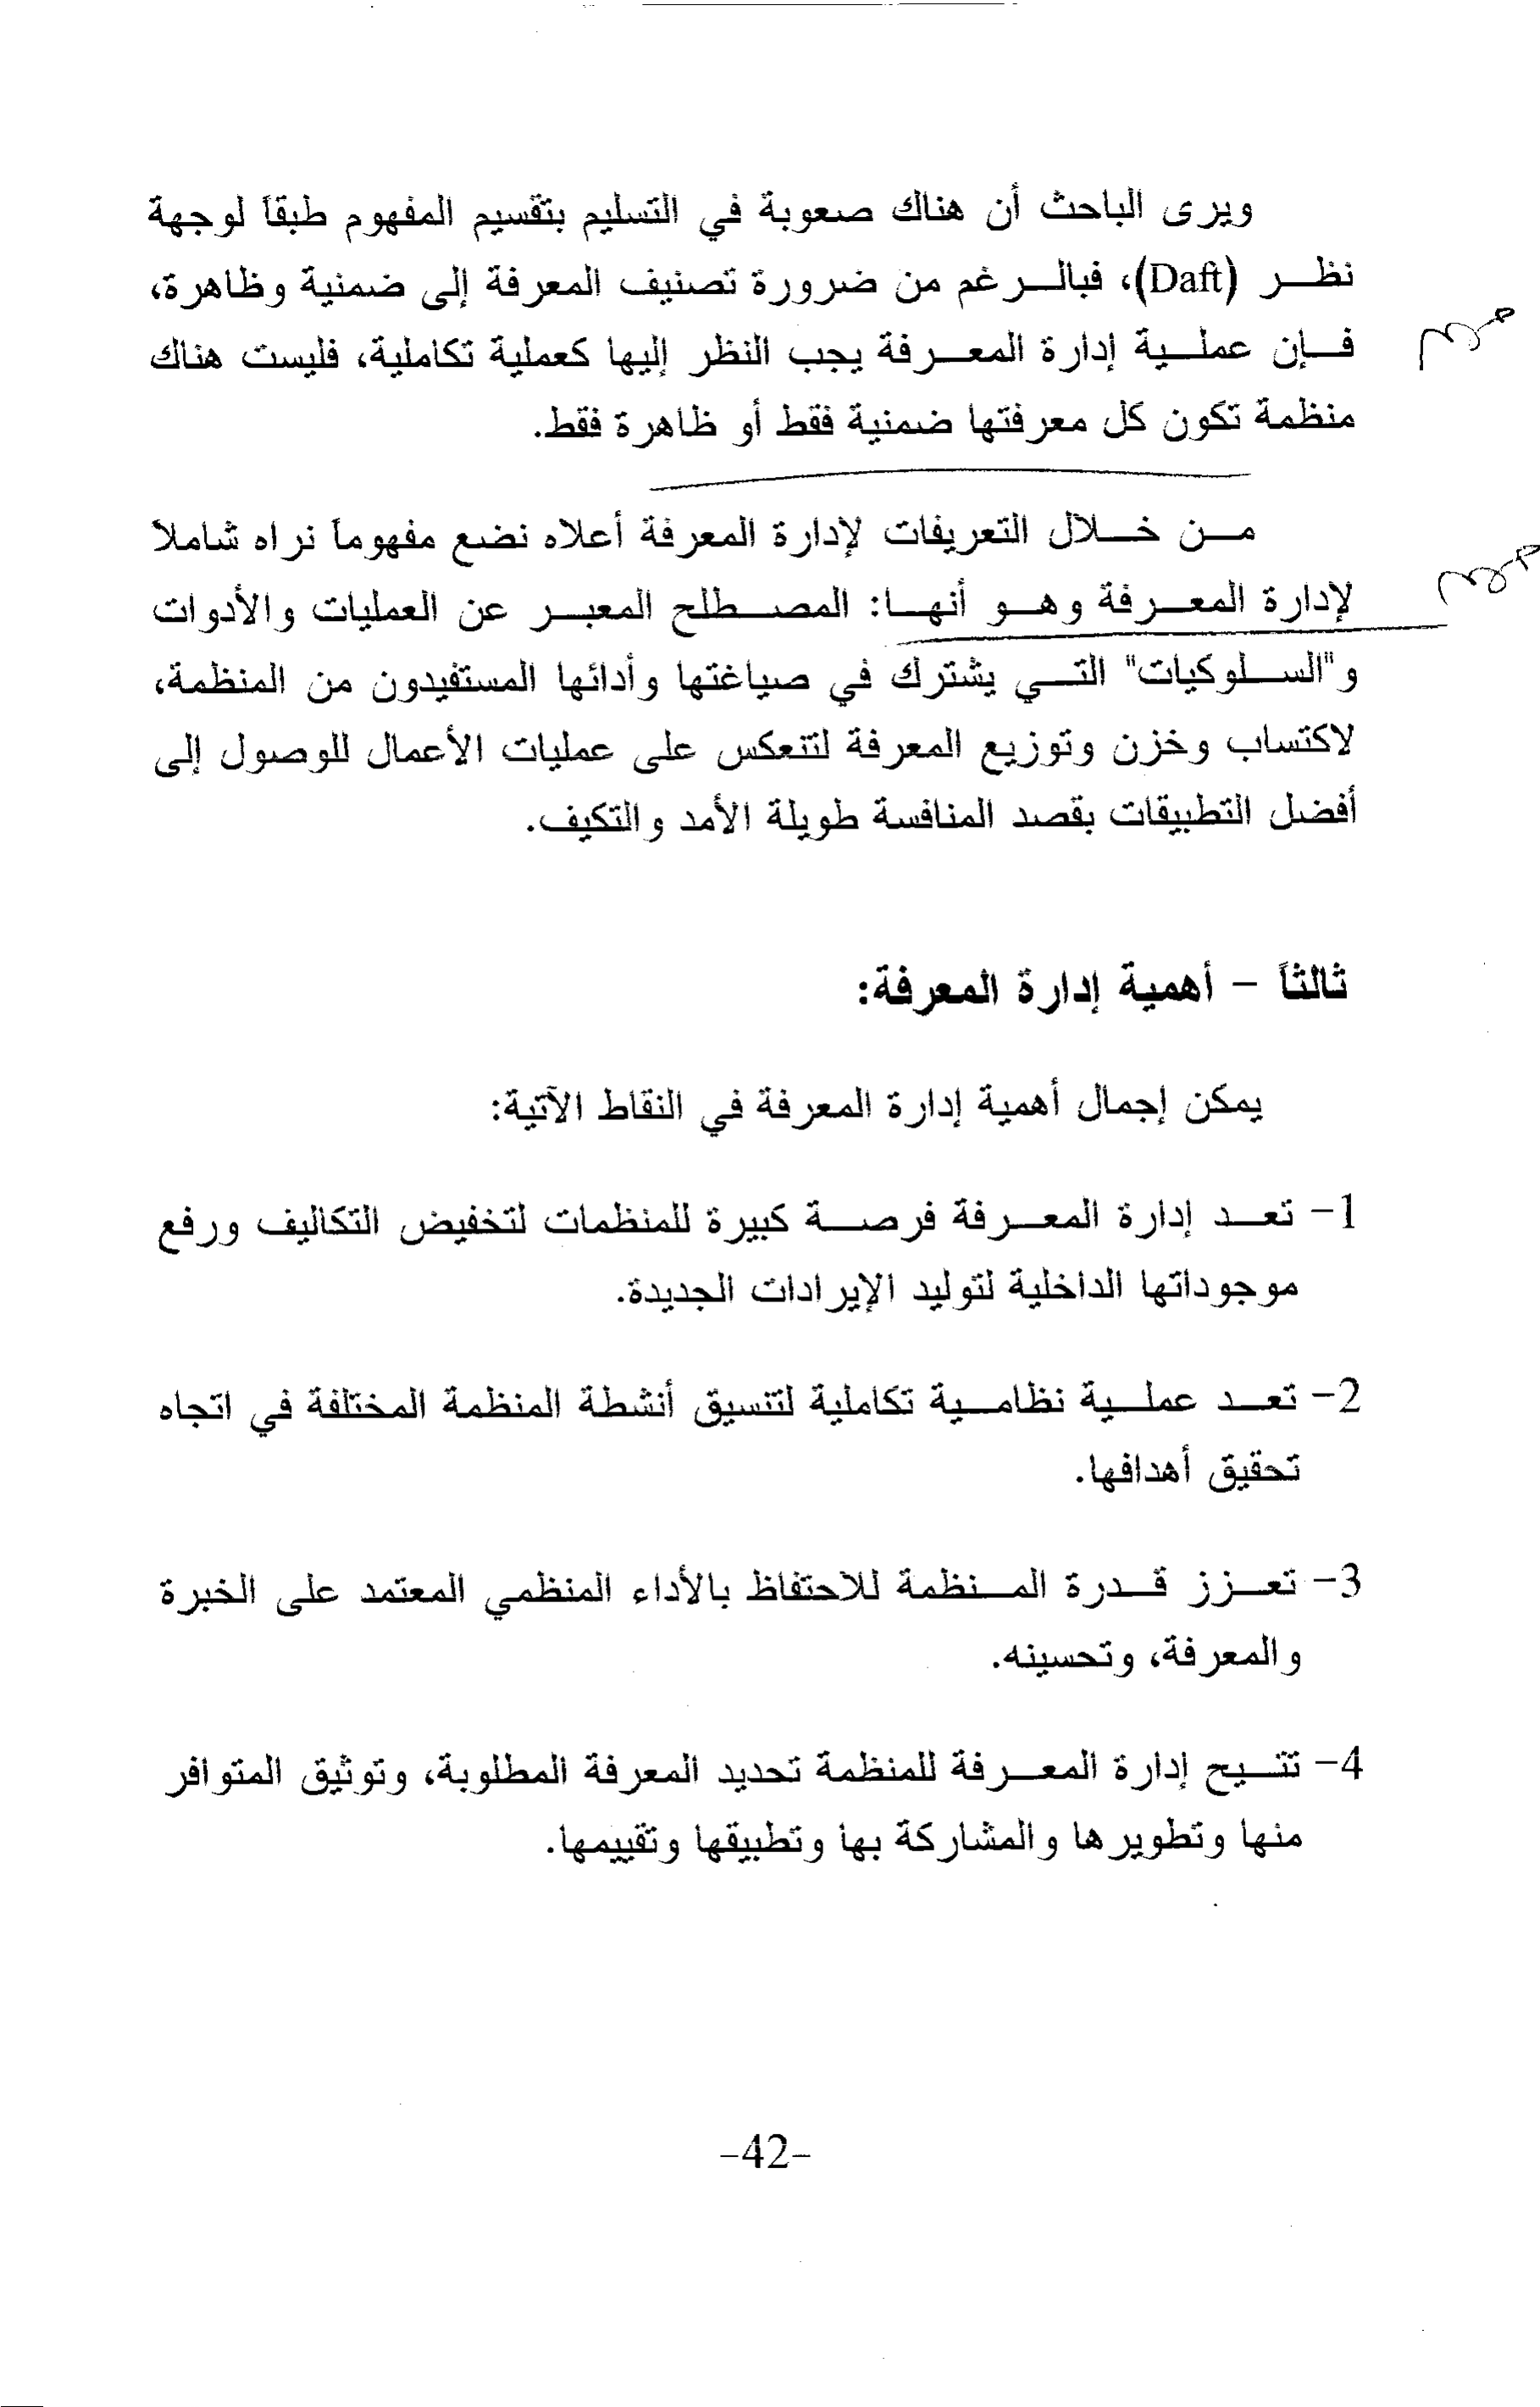 ويرى الباحث أن هناك صعوبة في التسليم بتقسيم المفهوم طبقاً لوجهة
نظر (Daft)، فبالرغم من ضرورة تصنيف المعرفة إلى ضمنية وظاهرة،
فإن عملية إدارة المعرفة يجب النظر إليها كعملية تكاملية، فليست هناك
مهم
منظمة تكون كل معرفتها ضمنية فقط أو ظاهرة فقط.
من خلال التعريفات لإدارة المعرفة أعلاه نضع مفهوماً نراه شاملاً
مهم
لإدارة المعرفة وهو أنها: المصطلح المعبر عن العمليات والأدوات
و"السلوكيات" التي يشترك في صياغتها وأدائها المستفيدون من المنظمة،
لاكتساب وخزن وتوزيع المعرفة لتنعكس على عمليات الأعمال للوصول إلى
أفضل التطبيقات بقصد المنافسة طويلة الأمد والتكيف.
ثالثاً - أهمية إدارة المعرفة:
يمكن إجمال أهمية إدارة المعرفة في النقاط الآتية:
1- تعد إدارة المعرفة فرصة كبيرة للمنظمات لتخفيض التكاليف ورفع
موجوداتها الداخلية لتوليد الإيرادات الجديدة.
2- تعد عملية نظامية تكاملية لتنسيق أنشطة المنظمة المختلفة في اتجاه
تحقيق أهدافها.
3- تعزز قدرة المنظمة للاحتفاظ بالأداء المنظمي المعتمد على الخبرة
والمعرفة، وتحسينه.
4- تتيح إدارة المعرفة للمنظمة تحديد المعرفة المطلوبة، وتوثيق المتوافر
منها وتطويرها والمشاركة بها وتطبيقها وتقييمها.
-42-